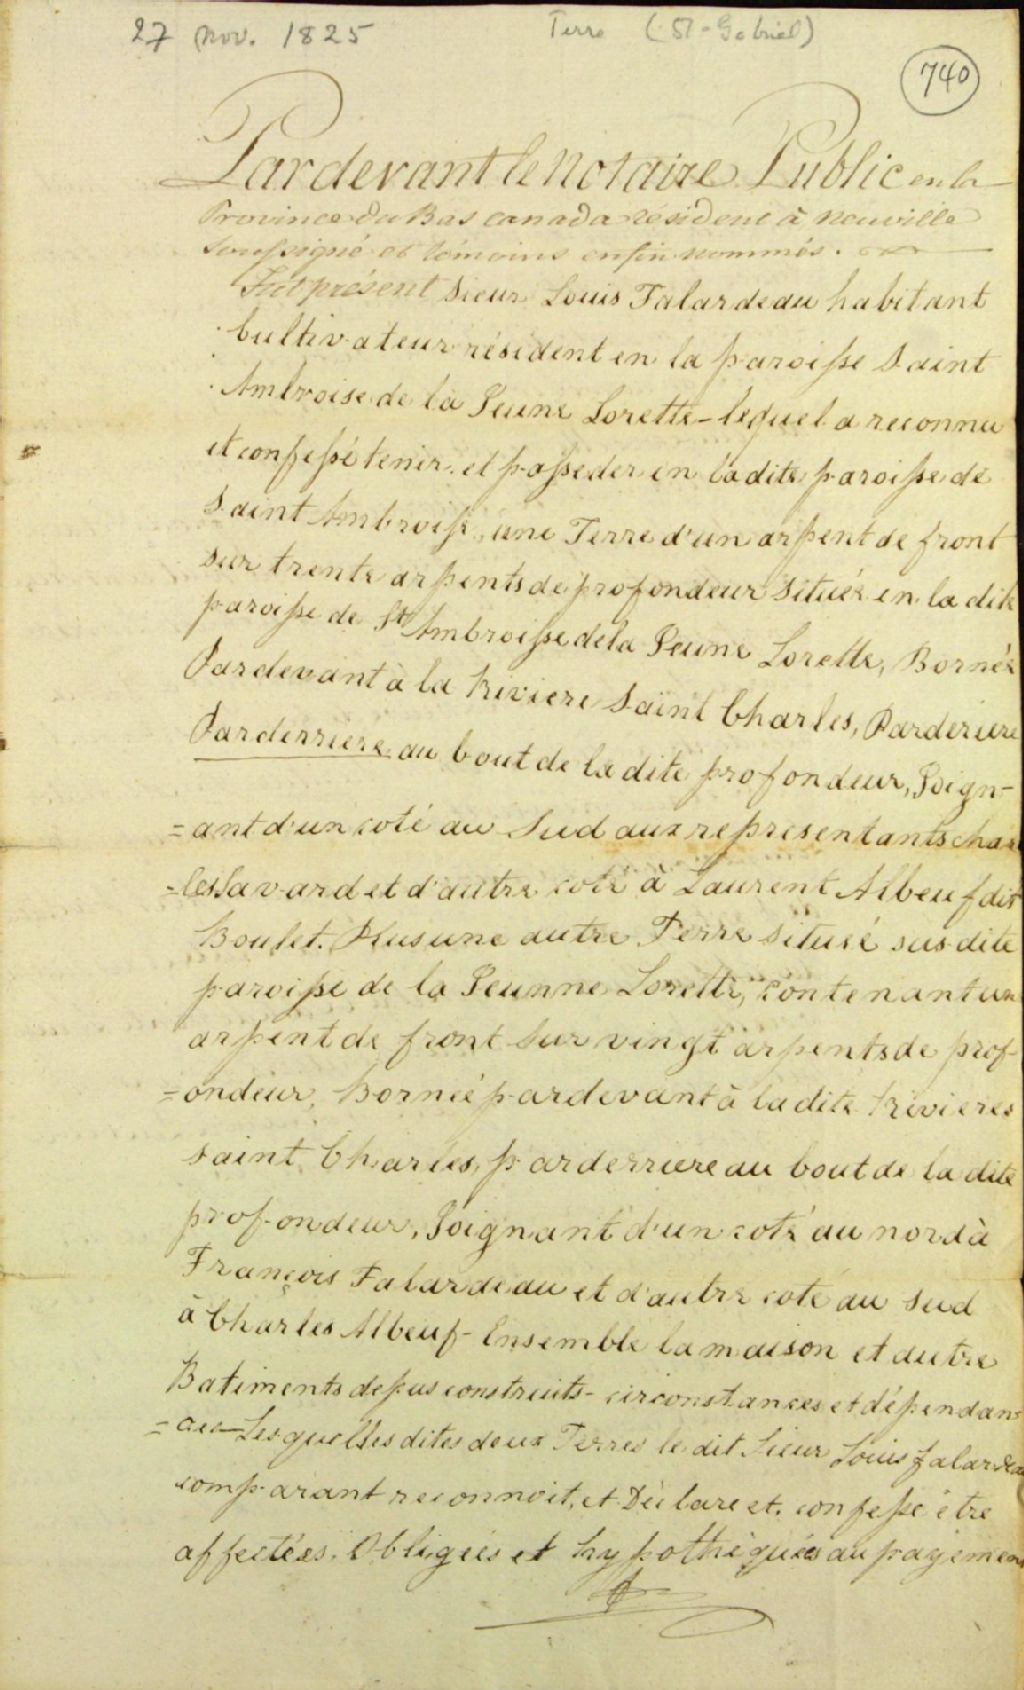 27 nov. 1825 Terre (St-Gabriel)
740
Pardevant le Notaire Public en la
Province du Bas Canada résident à Neuville
Soussigné et témoins enfin nommés.
Fut présent Sieur Louis Falardeau habitant
Cultivateur résident en la paroisse Saint
Ambroise de la Jeune Lorette - lequel a reconnu
et confessé tenir et posseder en ladite paroisse de
Saint Ambroise, une Terre d'un arpent de front
sur trente arpents de profondeur située en la dite
paroisse de St Ambroisse de la Jeune Lorette, Bornée
Pardevant à la Riviere Saint Charles, Parderiere
Parderriere au bout de la dite profondeur, Joign-
=ant d'un coté au Sud aux representants Char
=les Savard et d'autre coté à Laurent Albeuf dit
Boulet. Plus une autre Terre située sus dite
paroisse de la Jeunne Lorette, contenant un
arpent de front sur vingt arpents de prof-
=ondeur, Bornée pardevant à la dite Rivieres
Saint Charles, parderriere au bout de la dite
profondeur, Joignant d'un coté au nord à
François Falardeau et d'autre coté au Sud
à Charles Albeuf - Ensemble la maison et autre
Batiments dessus construits - circonstances et dépendan=
=ces - Lesquelles dites deux Terres le dit Sieur Louis Falardeau
comparant reconnoit, et Déclare et confesse être
affectées, Obligées et hypothéquées au payement